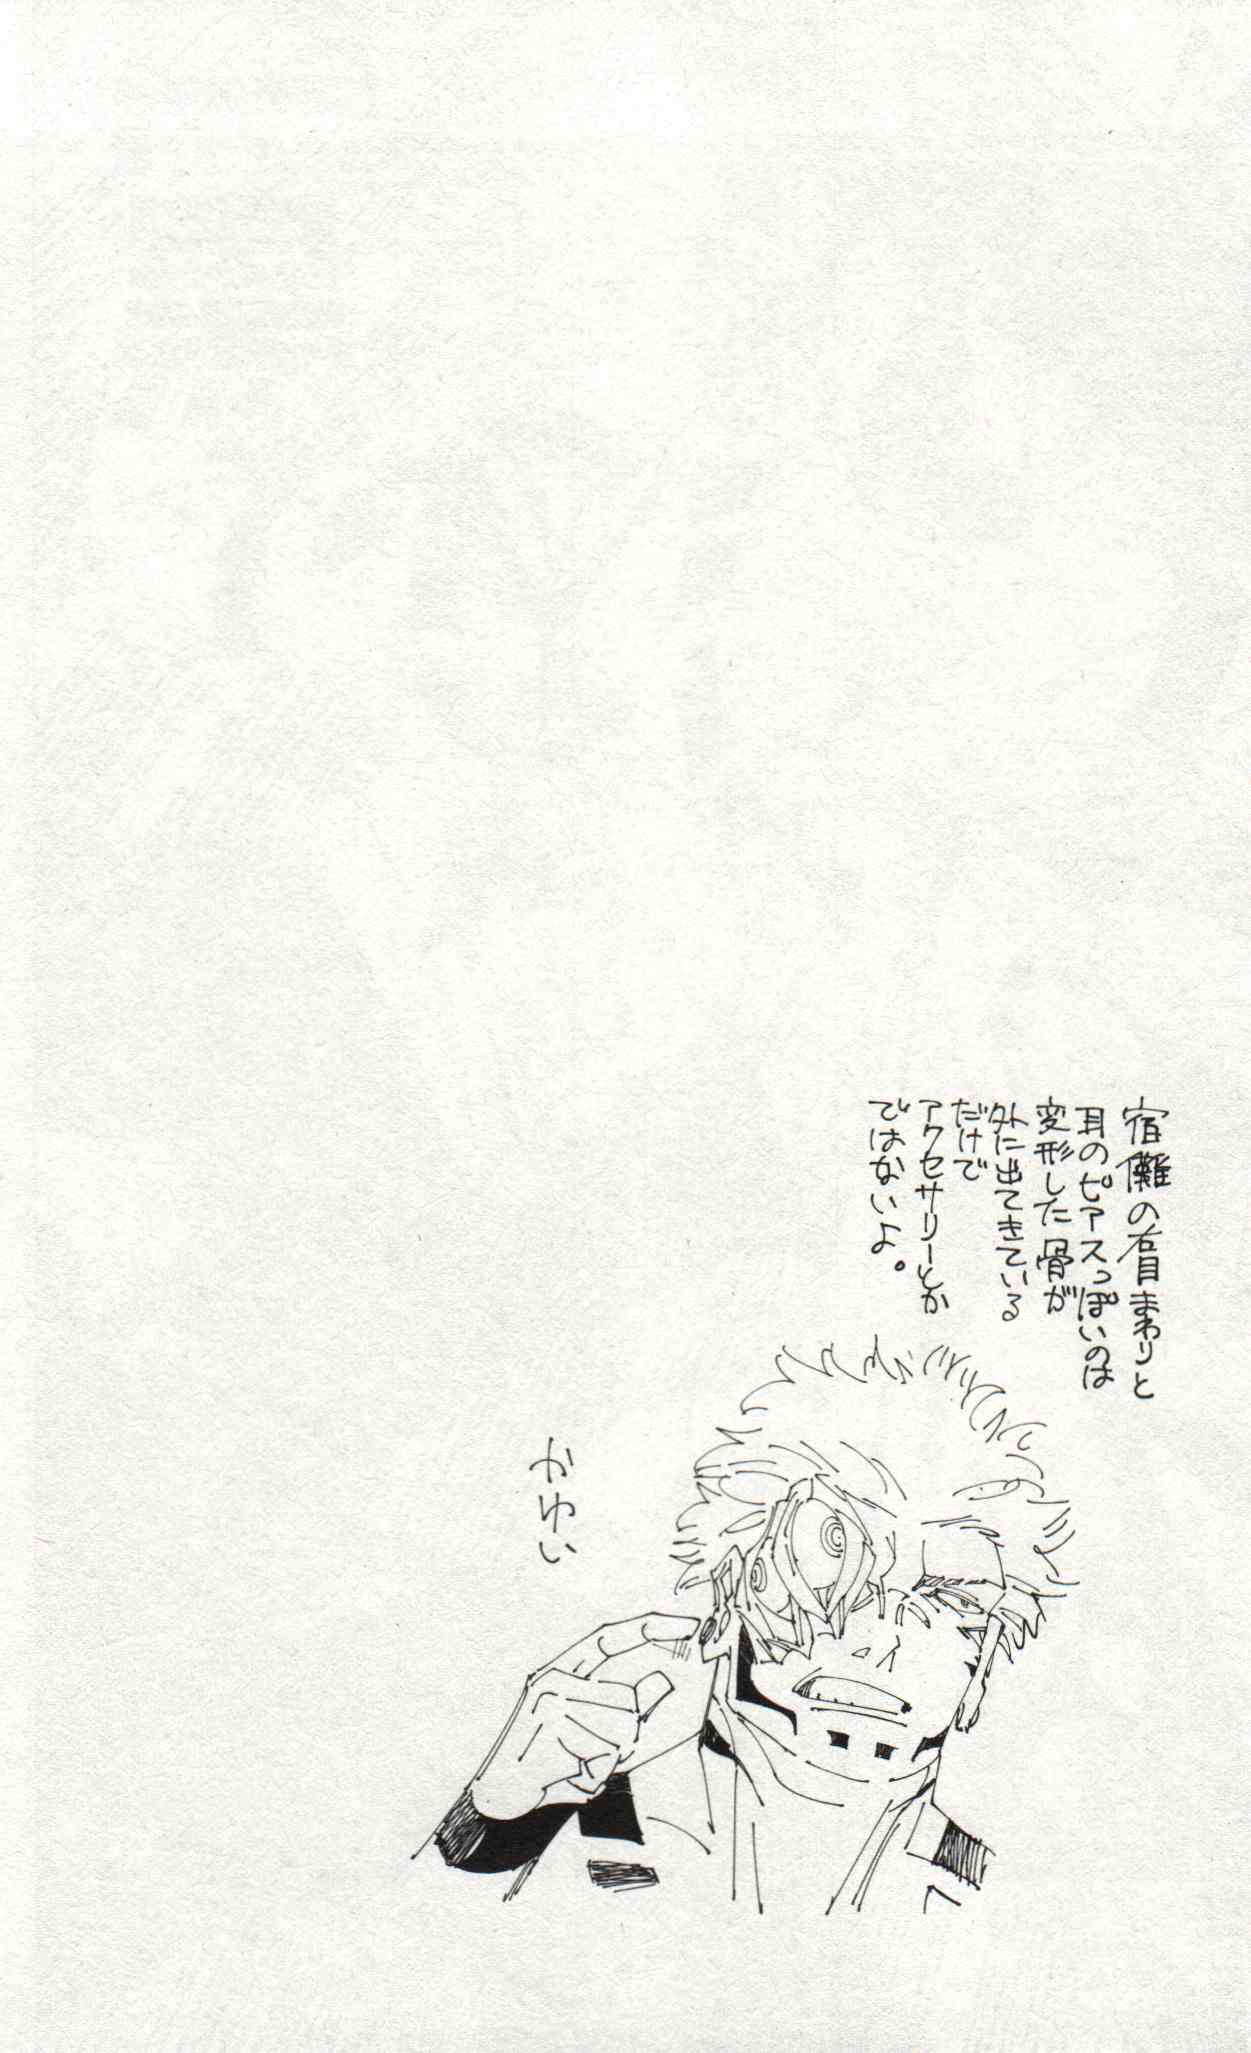 宿儺の眉まわりと
耳のピアスっぽいのは
変形した骨が
外に出てきている
だけで
アクセサリーとか
ではないよ。
かゆい